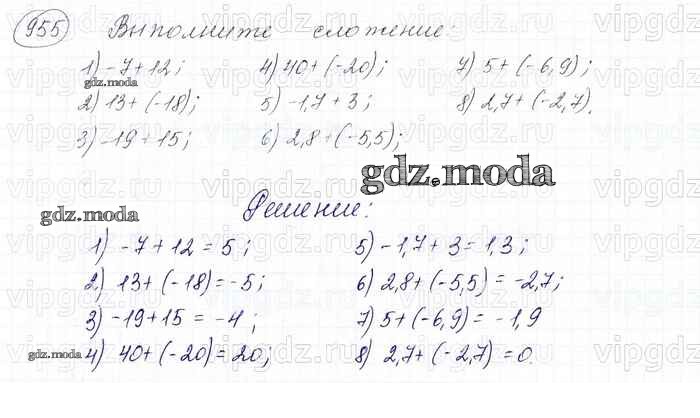 955 Выполните сложение:
1) -7+12; 4) 40+(-20); 7) 5+(-6,9);
gdz.moda
2) 13+(-18); 5) -1,7+3; 8) 2,7+(-2,7).
3) -19+15; 6) 2,8+(-5,5);
gdz.moda
gdz.moda Решение:
1) -7+12=5; 5) -1,7+3=1,3;
2) 13+(-18)=-5; 6) 2,8+(-5,5)=-2,7;
3) -19+15=-4; 7) 5+(-6,9)=-1,9
gdz.moda 4) 40+(-20)=20; 8) 2,7+(-2,7)=0.